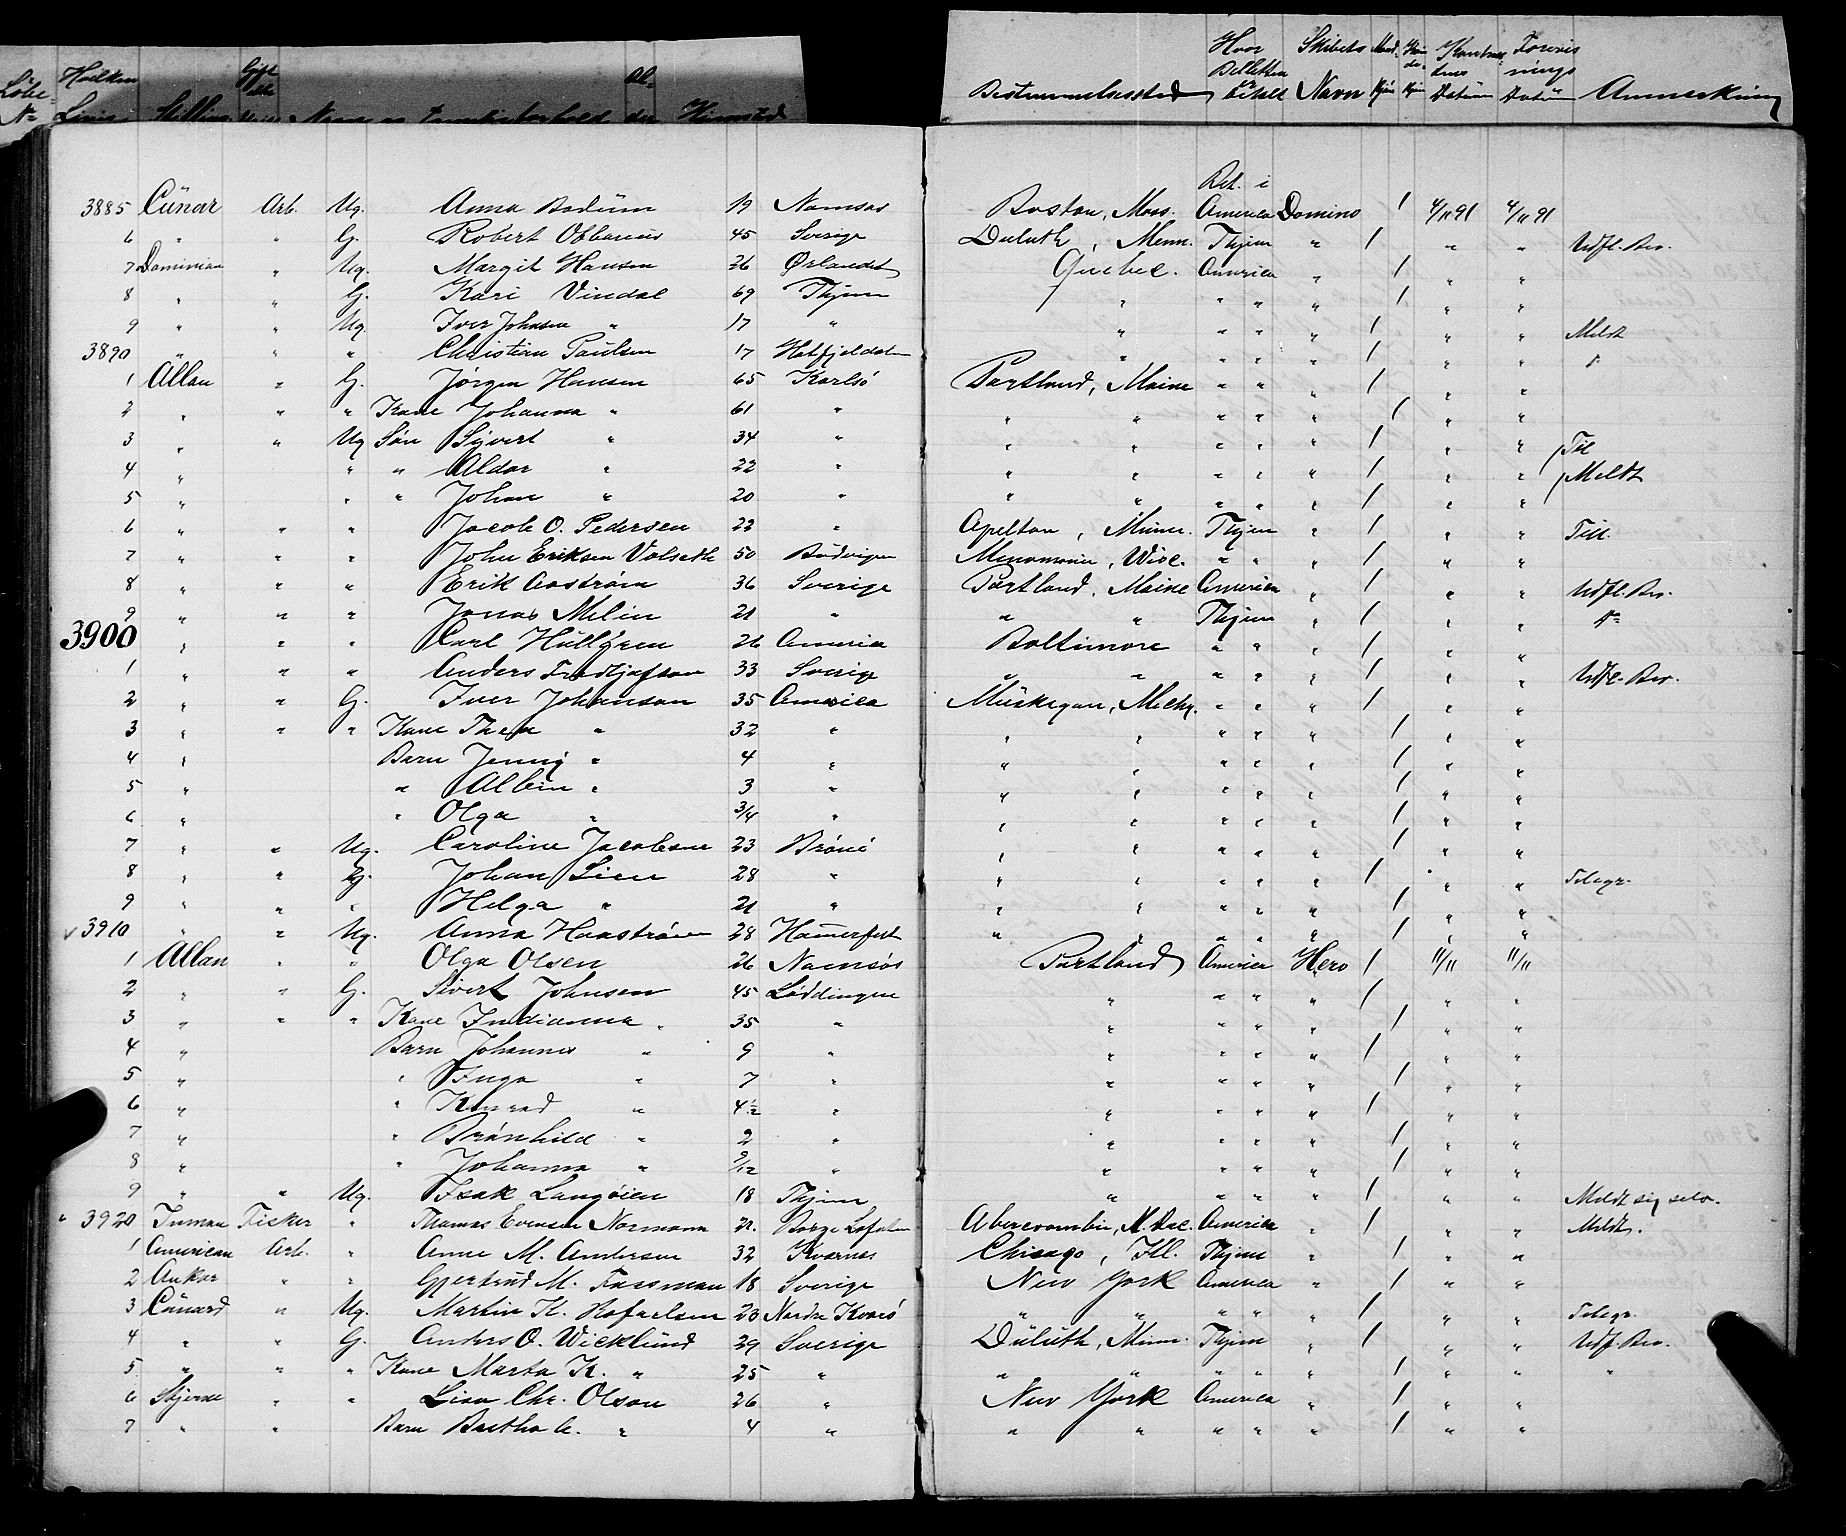 Løbe- No Hvilken Linie Stilling Gift eller Navn og Familieforhold Al- der Hjemsted Bestemmelsessted Hvor Billetten er betalt Skibets Navn Mand- kjøn Kvin- de- kjøn Datum Datum Anmærkning
Bet. i
3885 Cünar Arb. Ug. Anna Bodüm 19 Namsos Boston, Mass. America Domino 1 4/11 91 4/11 91
6 " " G. Robert 45 Sverige Duluth, Menn. Thjem " 1 " " Udfl. Bev.
7 Dominian " Ug. Margit Hansen 26 Ørlandet Quebec. America " 1 " "
8 " " G. Kari Vindal 69 Thjem " " " " 1 " "
9 " " Ug. Iver Johnsen " 17 " " " " " 1 " " Meldt
3890 " " " Christian Paulsen 17 Hatfjeldalen " " " " 1 " " "
1 Allan " G. Jørgen Hansen 65 Karlsö Portland, Maine " " " 1 " "
2 " " " Kone Johanna " 61 " " " " " " 1 " "
3 " " Ug Søn Sÿvert " 34 " " " " " " 1 " " Til
4 " " " Aldor " 22 " " " " " " 1 " " Meldt
5 " " " Johan " 20 " " " " " " 1 " "
6 " " " Jacob O. Pedersen 22 " Apelton, Minn. Thjem " 1 " " Till.
7 " " " John Eriksen Volseth 50 Budvigen Menomonie, Wisc. " " " 1 " "
8 " " " Erik Aaström 36 Sverige Portland, Maine America " 1 " " Udfl. Bev.
9 " " " Jonas Melin 21 " " " Thjem " 1 " " do
3900 " " " Carl Hüllgren 26 America Boltimore " " " 1 " "
1 " " " Anders Fredtjofson 33 Sverige " " " " " 1 " " Udfl. Bev.
2 " " G. Iver Johanson 35 America Müskegon, Michg. " " " 1 " "
3 " " " Kone Thea " 32 " " " " " " 1 " "
4 " Barn Jenny " 4 " " " " " " 1 " "
5 " " Albin " 3 " " " " " " 1 " "
6 " " Olga " 3/4 " " " " " " 1 " "
7 " " Ug. Caroline Jacobsen 23 Brönö " " " " " 1 " "
8 " " G. Johan Lien 28 " " " " " " 1 " " Telegr.
9 " " " Helga " 21 " " " " " " 1 " "
3910 " " Ug. Anna Haaström 28 Hamerfest " " " " " 1 " "
1 Allan " " Olga Olsen 26 Namsos Portland America Hero 1 11/11 11/11
2 " " G. Sivert Johnsen 45 Løddingen " " " " 1 " "
3 " " " Kone Indianna " 35 " " " " " 1 " "
4 " Barn Johannes " 9 " " " " " 1 " "
5 " " Inga " 7 " " " " " 1 " "
6 " " Konrad " 4½ " " " " " 1 " "
7 " " Brönhild " 2 " " " " " 1 " "
8 " " Johanna " 9/12 " " " " " 1 " "
9 " " Ug. Isak Langöien 18 Thjem " " " " 1 " " Meldt sig selv.
3920 Inman Fisker " Thomas Evensen Normann 21. Borge Lofoten Abercrombie, N. Dac. America " 1 " " Meldt.
1 American Arb. " Anne M. Andersen 32 Kvernes Chicago, Ill. Thjem " 1 " "
2 Ankor " " Gjertrud M. Fassman 18 Sverige New York America " 1 " "
3 Cünard " Ug. Martin K. Hofaelsen 23 Nordre Kvarö " " " " " 1 " " Telegr.
4 " " G. Anders O. Wicklünd 29 Sverige Düluth, Minn. Thjem " 1 " " Udf. Bev.
5 " " " Kone Marta K. " 25 " " " " " " 1 " " "
6 Stjerne " " Lina Chr. Olson 26 " New York America " 1 " "
7 " " Barn Bertha C. " 4 " " " " " " 1 " "